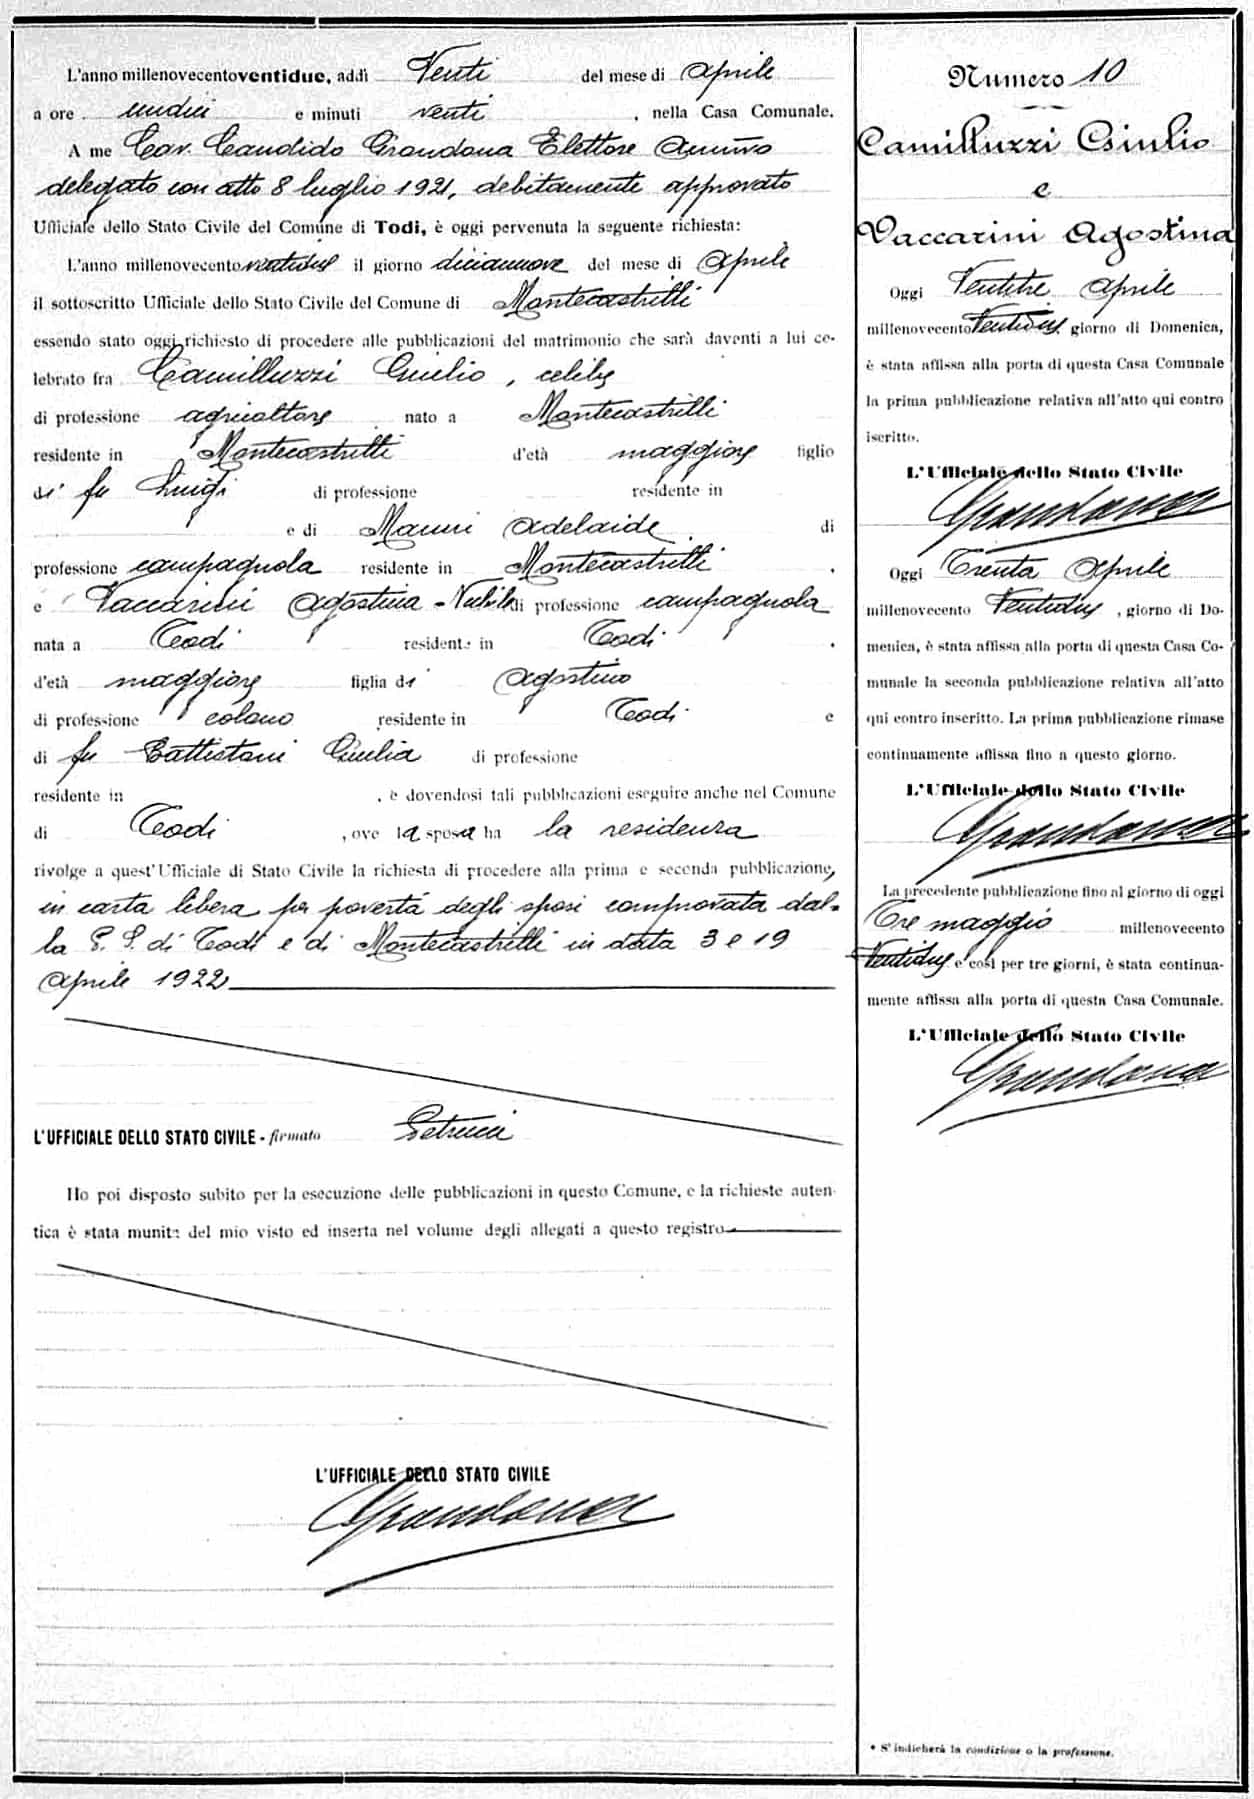 L'anno millenovecentoventidue, addì Venti del mese di Aprile
a ore undici e minuti venti, nella Casa Comunale.
A me Cav. Candido Grondona Elettore Ammvo
delegato con atto 8 luglio 1921, debitamente approvato
Ufficiale dello Stato Civile del Comune di Todi, è oggi pervenuta la seguente richiesta:
L'anno millenovecento ventidue il giorno diciannove del mese di Aprile
il sottoscritto Ufficiale dello Stato Civile del Comune di Montecastrilli
essendo stato oggi richiesto di procedere alle pubblicazioni del matrimonio che sarà daventi a lui ce-
lebrato fra Camilluzzi Giulio, celibe
di professione agricoltore nato a Montecastrilli
residente in Montecastrilli d'età maggiore figlio
di fu Luigi di professione residente in
e di Manni Adelaide di
professione campagnola residente in Montecastrilli.
e Vaccarini Agostina - Nubile di professione campagnola
nata a Todi residente in Todi.
d'età maggiore figlia di Agostino
di professione colono residente in Todi e
di fu Battistoni Giulia di professione
residente in , e dovendosi tali pubblicazioni eseguire anche nel Comune
di Todi, ove la sposa ha la residenza
rivolge a quest'Ufficiale di Stato Civile la richiesta di procedere alla prima e seconda pubblicazione,
in carta libera per povertà degli sposi comprovata dal-
la P. S. di Todi e di Montecastrilli in data 3 e 19
Aprile 1922
L'UFFICIALE DELLO STATO CIVILE - firmato Petrucci
Ho poi disposto subito per la esecuzione delle pubblicazioni in questo Comune, e la richieste auten-
tica è stata munita del mio visto ed inserta nel volume degli allegati a questo registro
L'UFFICIALE DELLO STATO CIVILE
Grondona
Numero 10
Camilluzzi Giulio
e
Vaccarini Agostina
Oggi Ventitre Aprile
millenovecento Ventidue giorno di Domenica,
è stata affissa alla porta di questa Casa Comunale
la prima pubblicazione relativa all'atto qui contro
iscritto.
L'Ufficiale dello Stato Civile
Grondona
Oggi Trenta Aprile
millenovecento Ventidue, giorno di Do-
menica, è stata affissa alla porta di questa Casa Co-
munale la seconda pubblicazione relativa all'atto
qui contro inscritto. La prima pubblicazione rimase
continuamente affissa fino a questo giorno.
L'Ufficiale dello Stato Civile
Grondona
La precedente pubblicazione fino al giorno di oggi
Tre maggio millenovecento
Ventidue e così per tre giorni, è stata continua-
mente affissa alla porta di questa Casa Comunale.
L'Ufficiale dello Stato Civile
Grondona
* S'indicherà la condizione o la professione.